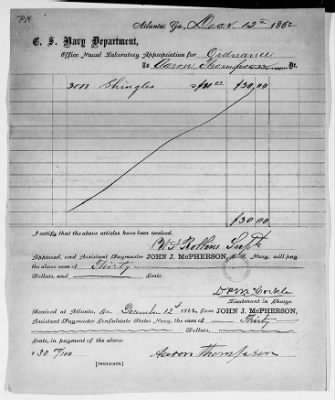 PN
Atlanta Ga, Decr 12th 1862
C. S. Navy Department,
Office Naval Laboratory Appropriation for Ordnance
To Aaron Thompson Dr.
3000 Shingles $30.00
$30.00
I certify that the above articles have been received.
Robbins Supt
Approved, and Assistant Paymaster JOHN J. McPHERSON, Navy, will pay
the above sum of Thirty
Dollars, and Cents.
D P McCorkle
Lieutenant in Charge.
Received at Atlanta, Ga. December 12th 1862, from JOHN J. McPHERSON,
Assistant Paymaster Confederate States Navy, the sum of Thirty
Dollars,
Cents, in payment of the above
$30 00/100 Aaron Thompson